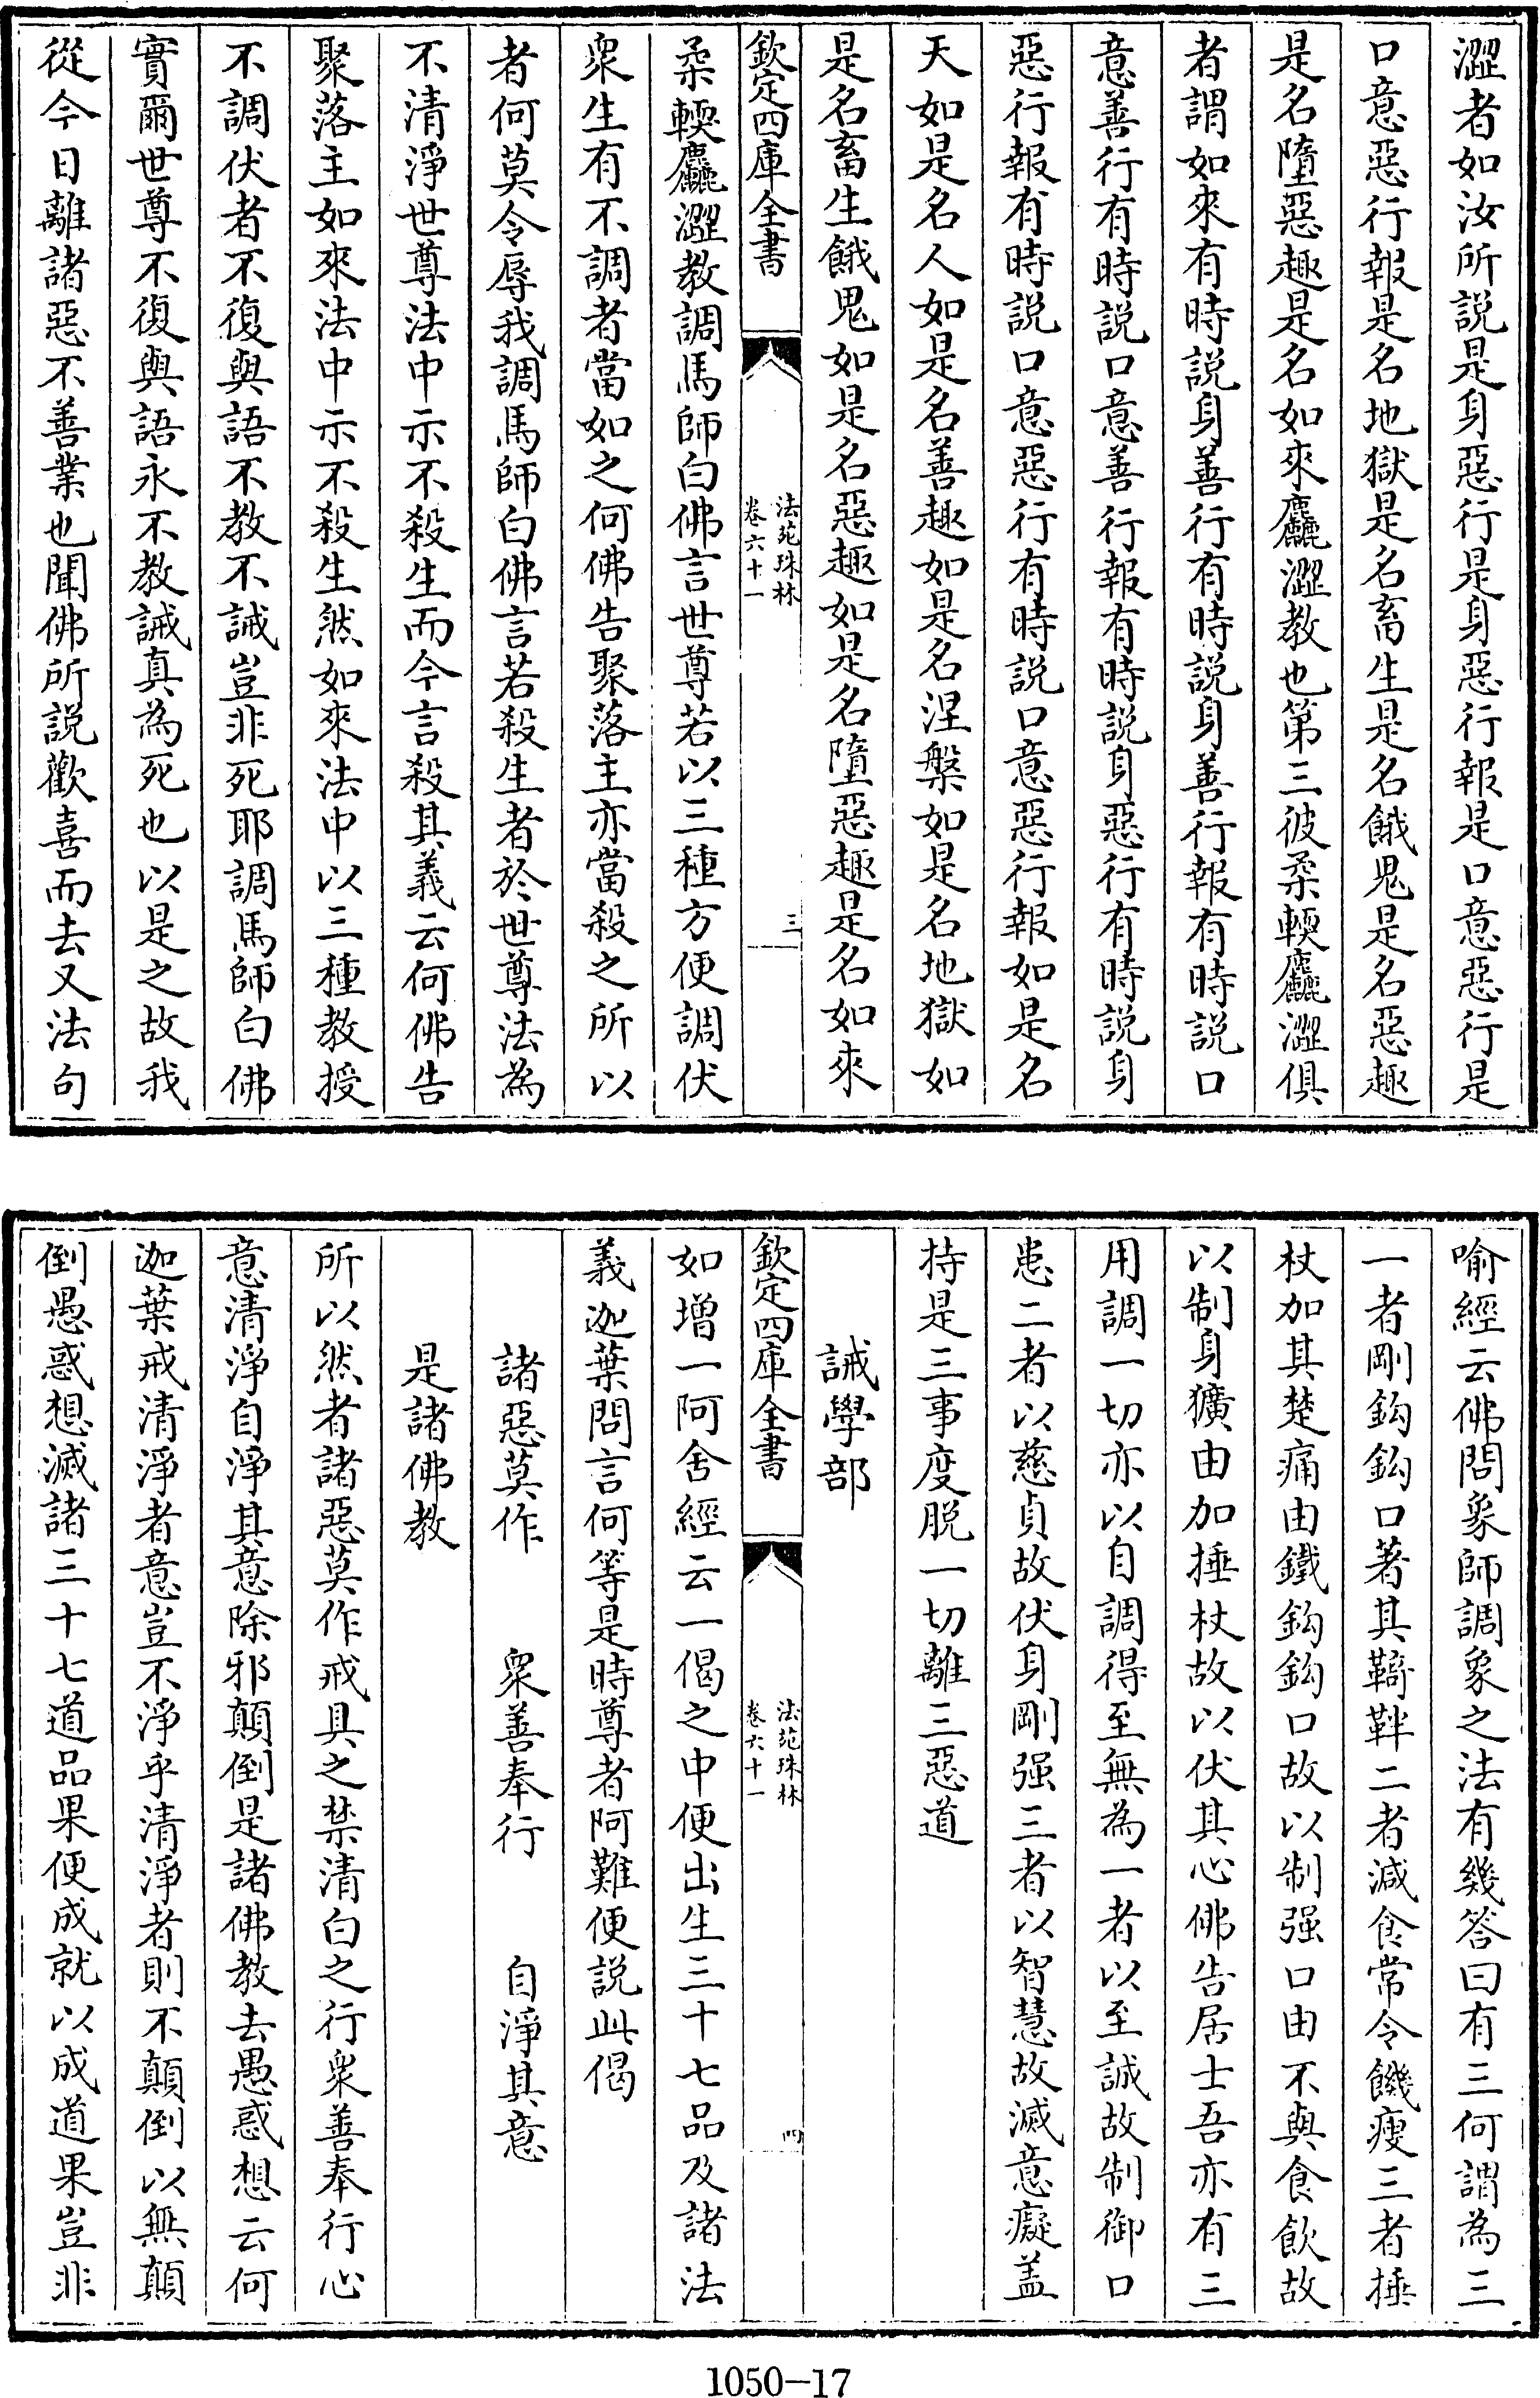 澀者如汝所説是身惡行是身惡行報是口意惡行是
口意惡行報是名地獄是名畜生是名餓鬼是名惡趣
是名墮惡趣是名如來麤澀教也第三彼柔輭麤澀俱
者謂如來有時説身善行有時説身善行報有時説口
意善行有時説口意善行報有時説身惡行有時説身
惡行報有時説口意惡行有時説口意惡行報如是名
天如是名人如是名善趣如是名涅槃如是名地獄如
是名畜生餓鬼如是名惡趣如是名墮惡趣是名如來
欽定四庫全書
法苑珠林
卷六十一
三
柔輭麤澀教調馬師白佛言世尊若以三種方便調伏
衆生有不調者當如之何佛告聚落主亦當殺之所以
者何莫令辱我調馬師白佛言若殺生者於世尊法為
不清淨世尊法中示不殺生而今言殺其義云何佛告
聚落主如來法中示不殺生然如來法中以三種教授
不調伏者不復與語不教不誡豈非死耶調馬師白佛
實爾世尊不復與語永不教誡真為死也以是之故我
從今日離諸惡不善業也聞佛所説歡喜而去又法句
喻經云佛問象師調象之法有幾答曰有三何謂為三
一者剛鈎鈎口著其䩭靽二者減食常令饑瘦三者捶
杖加其楚痛由鐵鈎鈎口故以制强口由不與食飲故
以制身獷由加捶杖故以伏其心佛告居士吾亦有三
用調一切亦以自調得至無為一者以至誠故制御口
患二者以慈貞故伏身剛强三者以智慧故滅意癡盖
持是三事度脱一切離三惡道
誡學部
欽定四庫全書
法苑珠林
卷六十一
四
如增一阿舍經云一偈之中便出生三十七品及諸法
義迦葉問言何等是時尊者阿難便説此偈
諸惡莫作　衆善奉行　自淨其意
是諸佛教
所以然者諸惡莫作戒具之禁清白之行衆善奉行心
意清淨自淨其意除邪顛倒是諸佛教去愚惑想云何
迦葉戒清淨者意豈不淨乎清淨者則不顛倒以無顛
倒愚惑想滅諸三十七道品果便成就以成道果豈非
1050-17